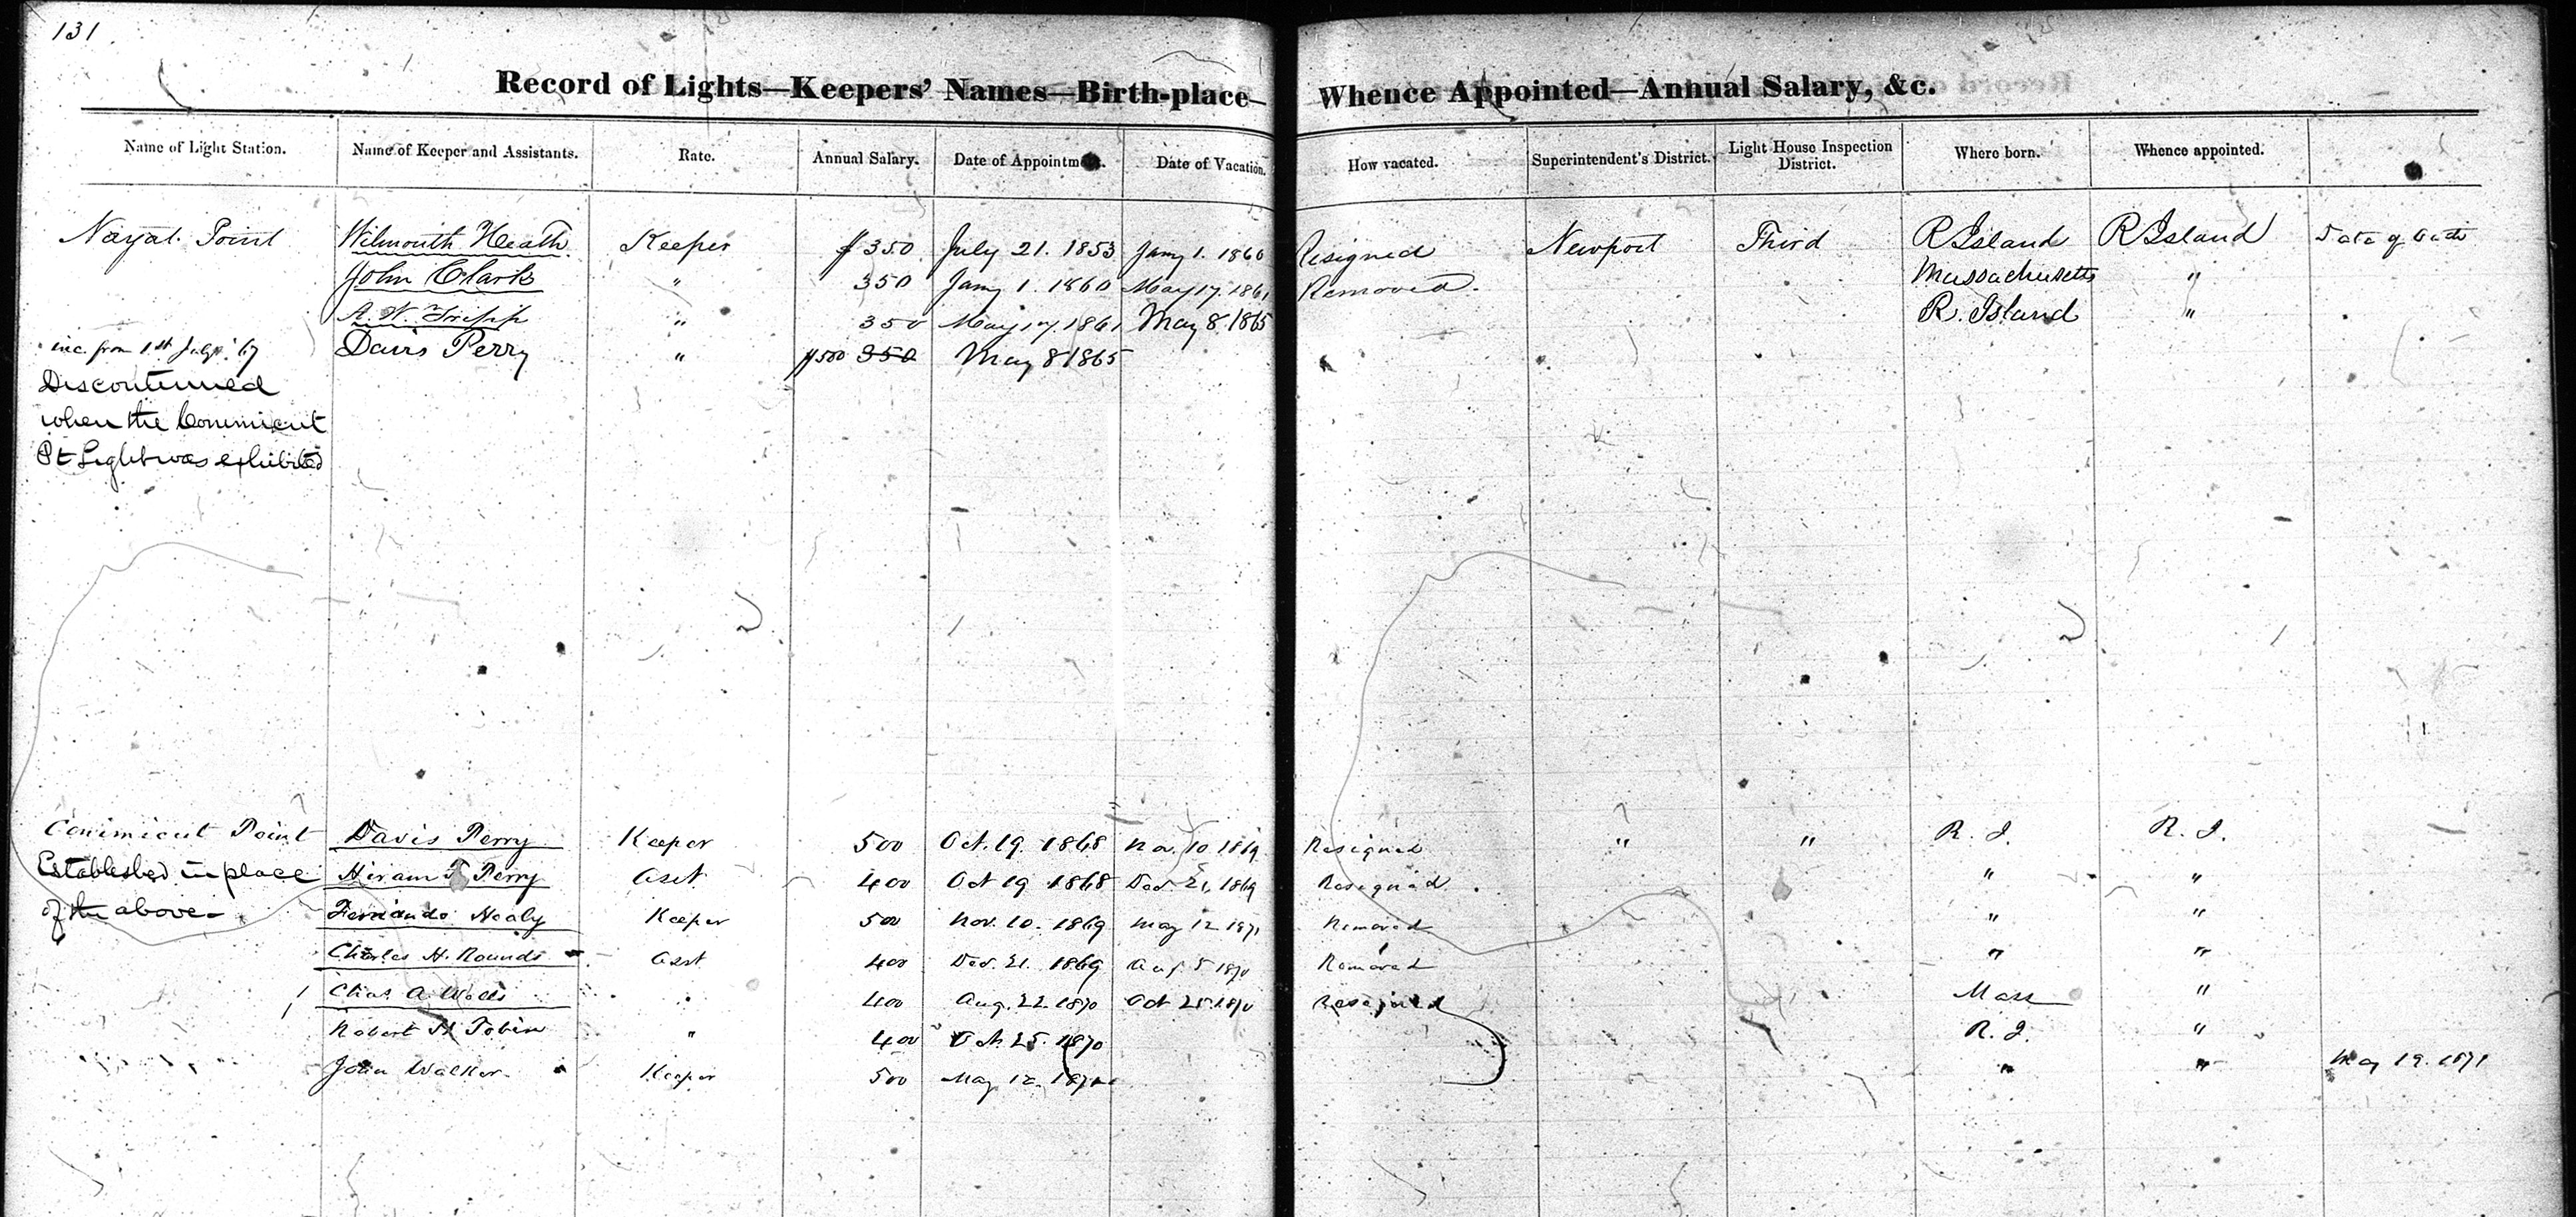 131
Record of Lights—Keepers' Names—Birth-place— Whence Appointed—Annual Salary, &c.
Name of Light Station. Name of Keeper and Assistants. Rate. Annual Salary. Date of Appointment. Date of Vacation. How vacated. Superintendent's District. Light House Inspection District. Where born. Whence appointed.
Nayat. Point Wilmouth Heath. Keeper $350 July 21. 1853 Jany 1. 1860 Resigned Newport Third R Island R Island Date of Oath
John Clark " 350 Jany 1. 1860 May 17. 1861 Removed. Massachusetts "
A. W. Tripp " 350 May 17. 1861 May 8. 1865 R. Island "
inc. from 1st July '67 Davis Perry " $500 350 May 8 1865
Discontinued
when the Conimicut
Pt Light was exhibited
Conimicut Point Davis Perry Keeper 500 Oct. 19. 1868 Nov. 10. 1869 Resigned " " R. I. R. I.
Established in place Hiram Perry Asst 400 Oct 19 1868 Dec. 21, 1869 Resigned " "
of the above— Fernando Healy Keeper 500 Nov. 10. 1869 May 12 1871 Removed " "
Charles H. Rounds Asst 400 Dec. 21. 1869 Aug. 5 1870 Removed " "
Chas. A. Wells " 400 Aug. 22. 1870 Oct 25. 1870 Resigned Mass "
Robert H. Tobin " 400 Oct. 25. 1870 R. I. "
John Walker Keeper 500 May 12. 1871 " " May 19. 1871